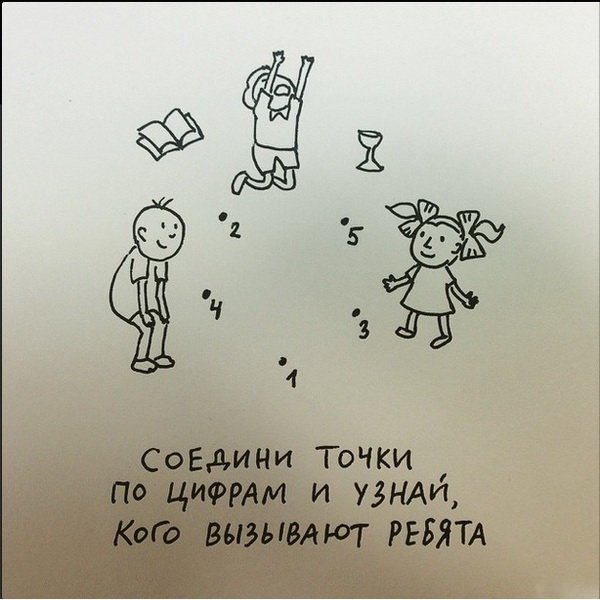 2
5
4
3
1
СОЕДИНИ ТОЧКИ
ПО ЦИФРАМ И УЗНАЙ,
КОГО ВЫЗЫВАЮТ РЕБЯТА